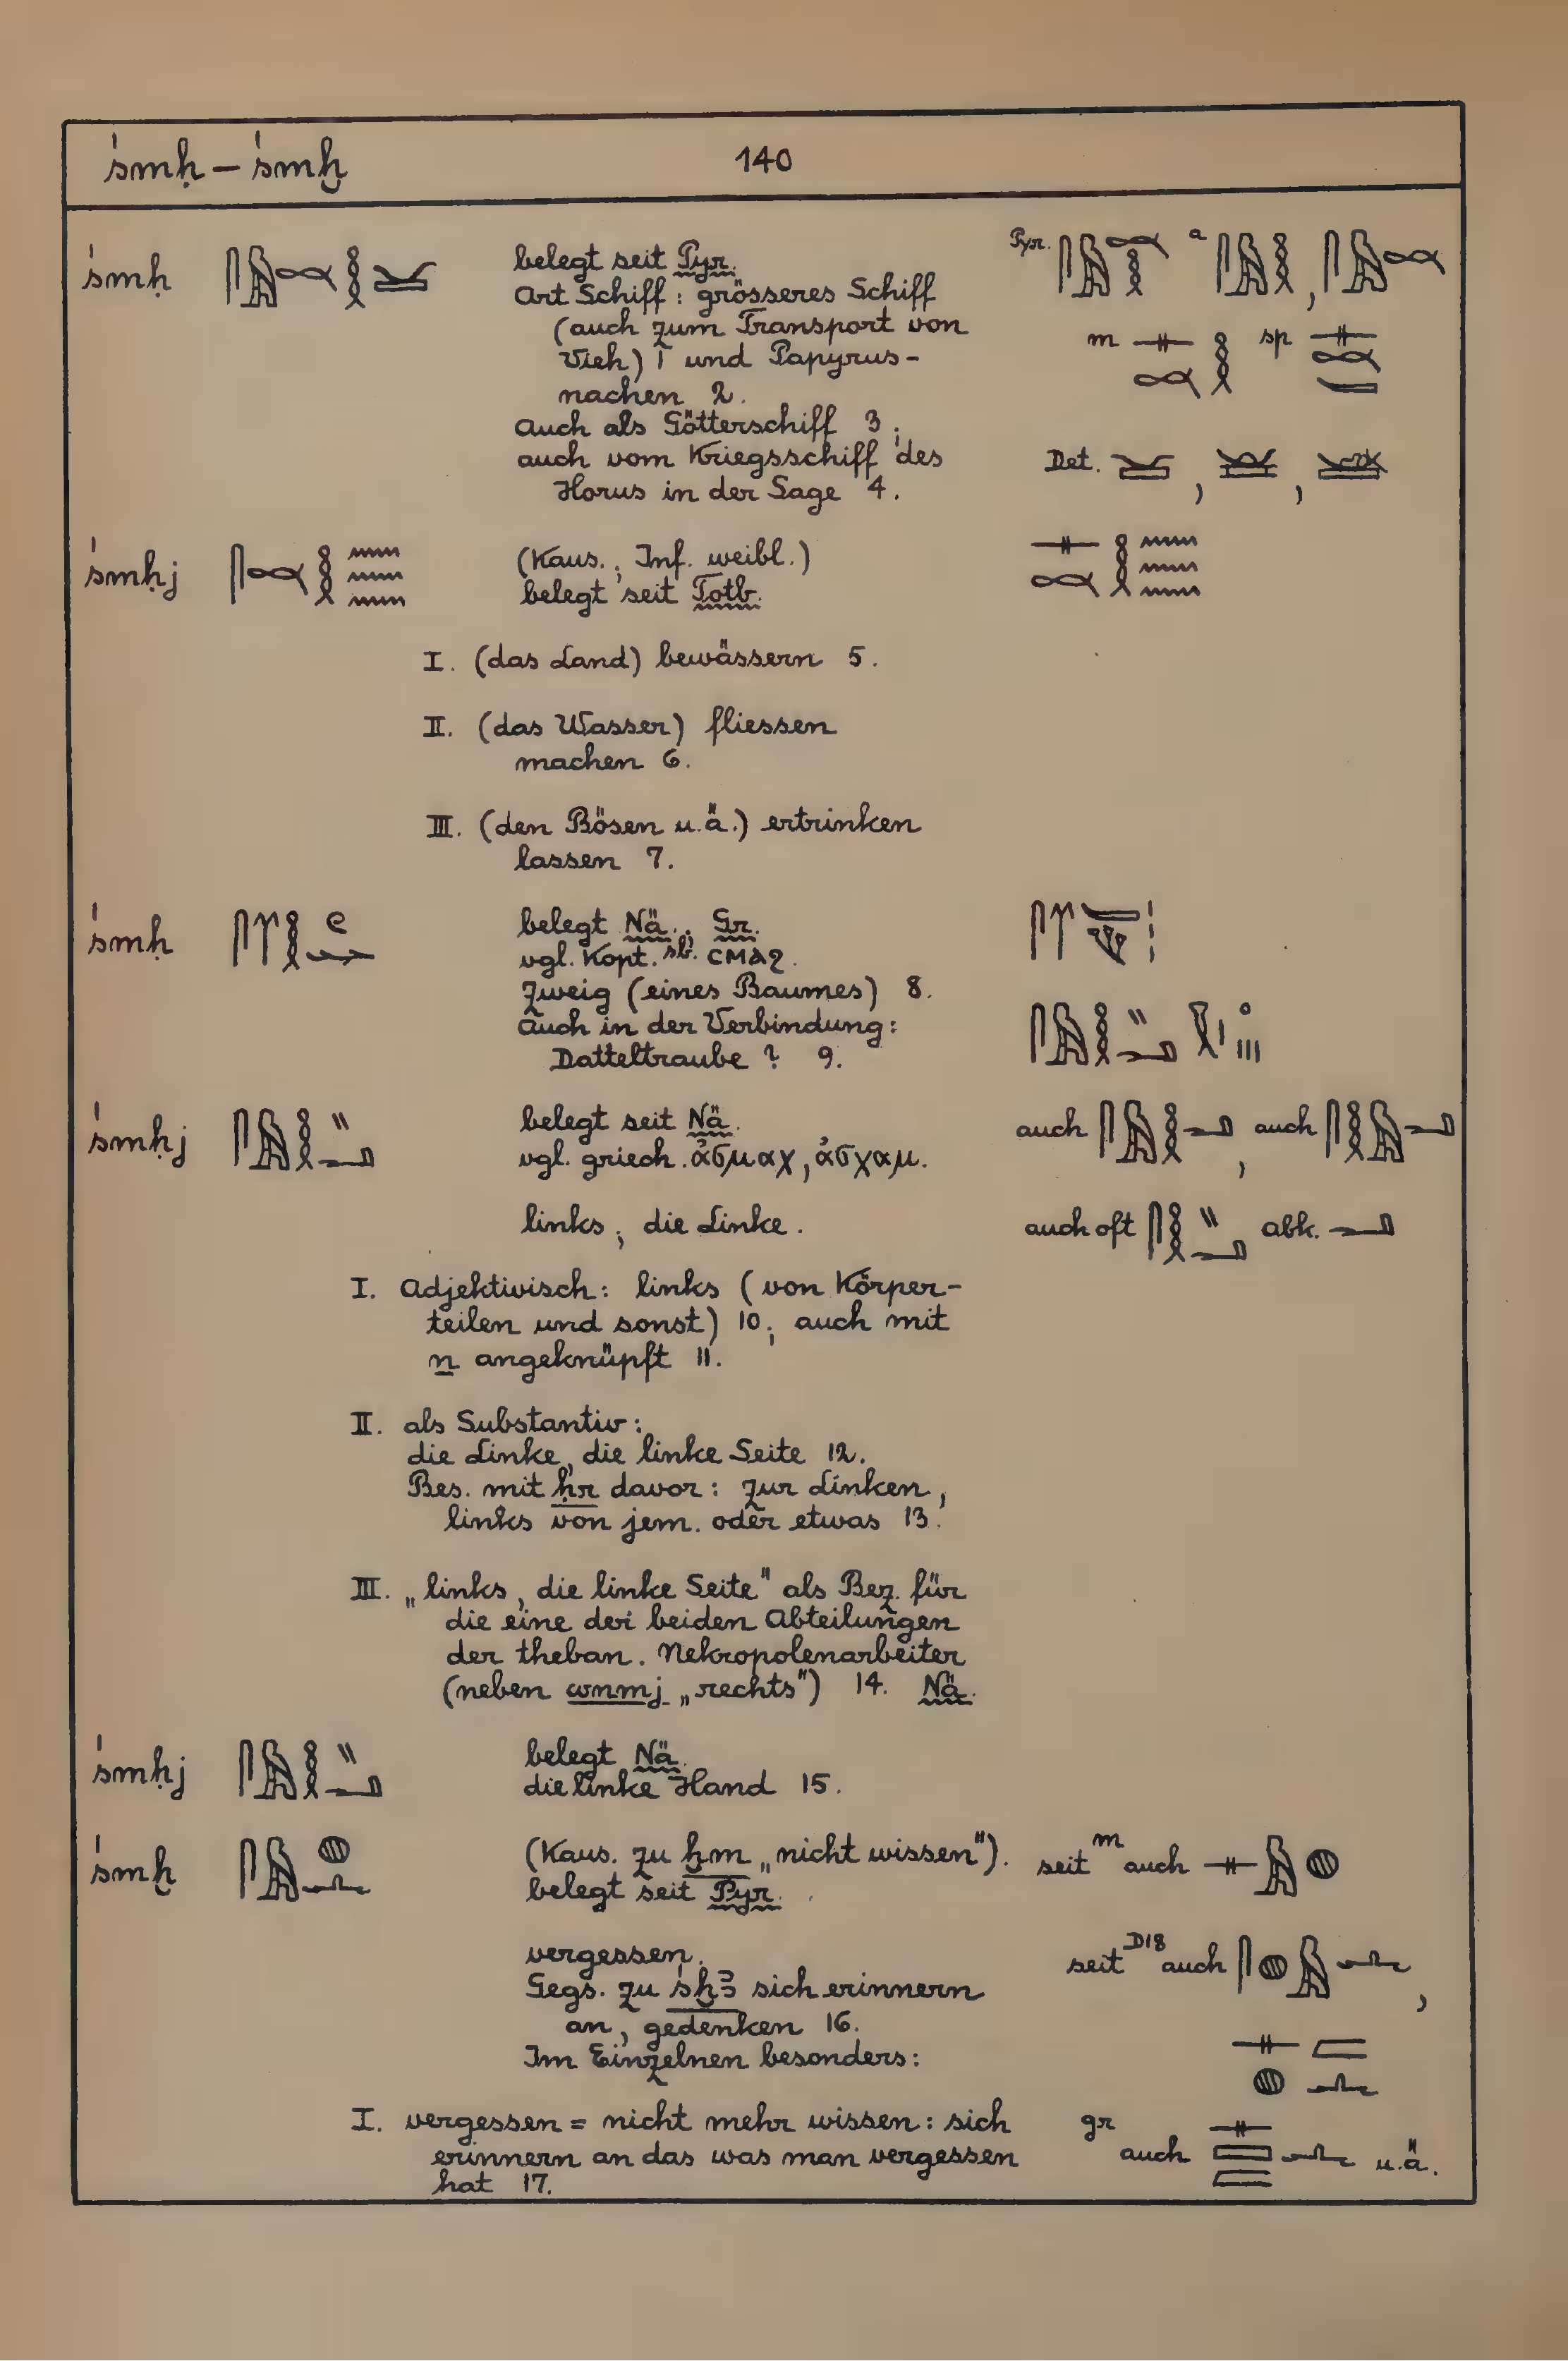 śmḥ – śmḫ
140
śmḥ
belegt seit Pyr.
Art Schiff: grösseres Schiff
(auch zum Transport von
Vieh) 1 und Papyrus-
nachen 2.
Auch als Götterschiff 3;
auch vom Kriegsschiff des
Horus in der Sage 4.
Pyr. a
m sp
Det.
śmḥj
(Kaus.; Inf. weibl.)
belegt seit Totb.
I. (das Land) bewässern 5.
II. (das Wasser) fliessen
machen 6.
III. (den Bösen u.ä.) ertrinken
lassen 7.
śmḥ
belegt Nä.; Gr.
vgl. Kopt. sb. ⲥⲙⲁϩ.
Zweig (eines Baumes) 8.
Auch in der Verbindung:
Datteltraube? 9.
śmḥj
belegt seit Nä.
vgl. griech. ἀσμαχ, ἀσχαμ.
auch , auch
links; die Linke.
auch oft abk.
I. Adjektivisch: links (von Körper-
teilen und sonst) 10; auch mit
n angeknüpft 11.
II. als Substantiv:
die Linke, die linke Seite 12.
Bes. mit ḥr davor: zur Linken,
links von jem. oder etwas 13.
III. „links, die linke Seite" als Bez. für
die eine der beiden Abteilungen
der theban. Nekropolenarbeiter
(neben wnmj „rechts") 14. Nä.
śmḥj
belegt Nä.
die linke Hand 15.
śmḫ
(Kaus. zu ḫm „nicht wissen").
belegt seit Pyr.
seit m auch
vergessen.
Gegs. zu śḫꜣ sich erinnern
an, gedenken 16.
Im Einzelnen besonders:
seit D18 auch ,
I. vergessen = nicht mehr wissen: sich
erinnern an das was man vergessen
hat 17.
gr
auch u.ä.